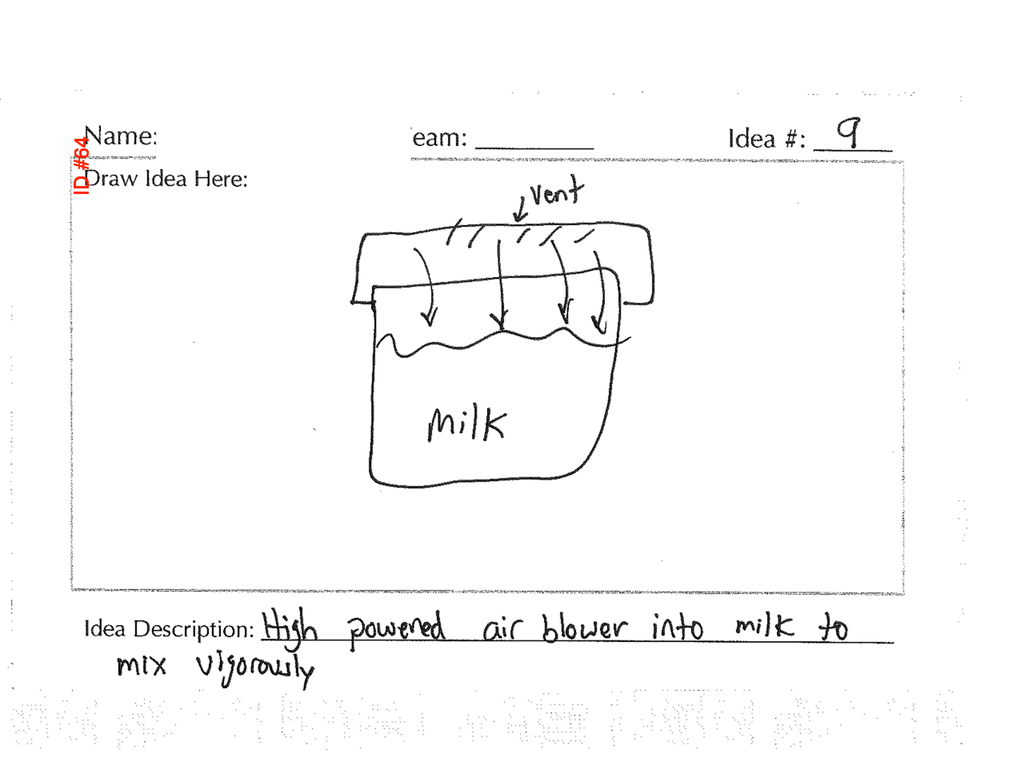 Name: eam: Idea #: 9
ID #64
Draw Idea Here:
vent
Milk
Idea Description: High powered air blower into milk to
mix vigorously